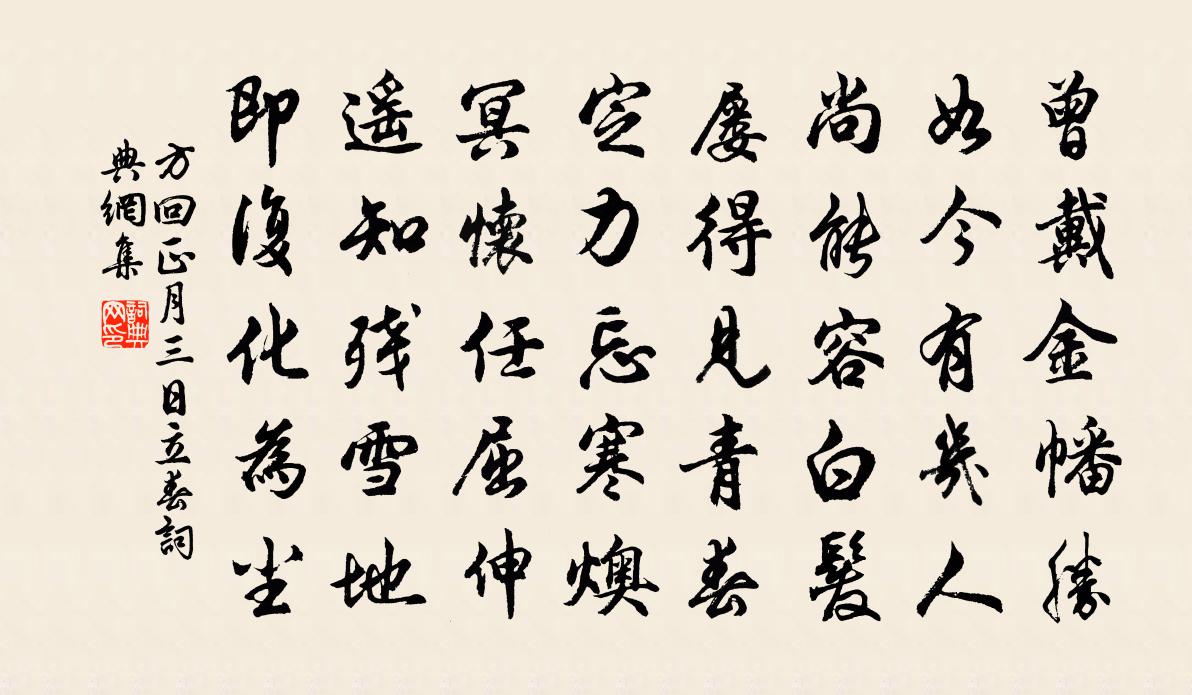 曾戴金幡勝
如今有幾人
尚能容白髮
屡得見青春
定力忘寒燠
冥懷任屈伸
遥知残雪地
即復化為尘
方回正月三日立春詞
典網集
詞典网印